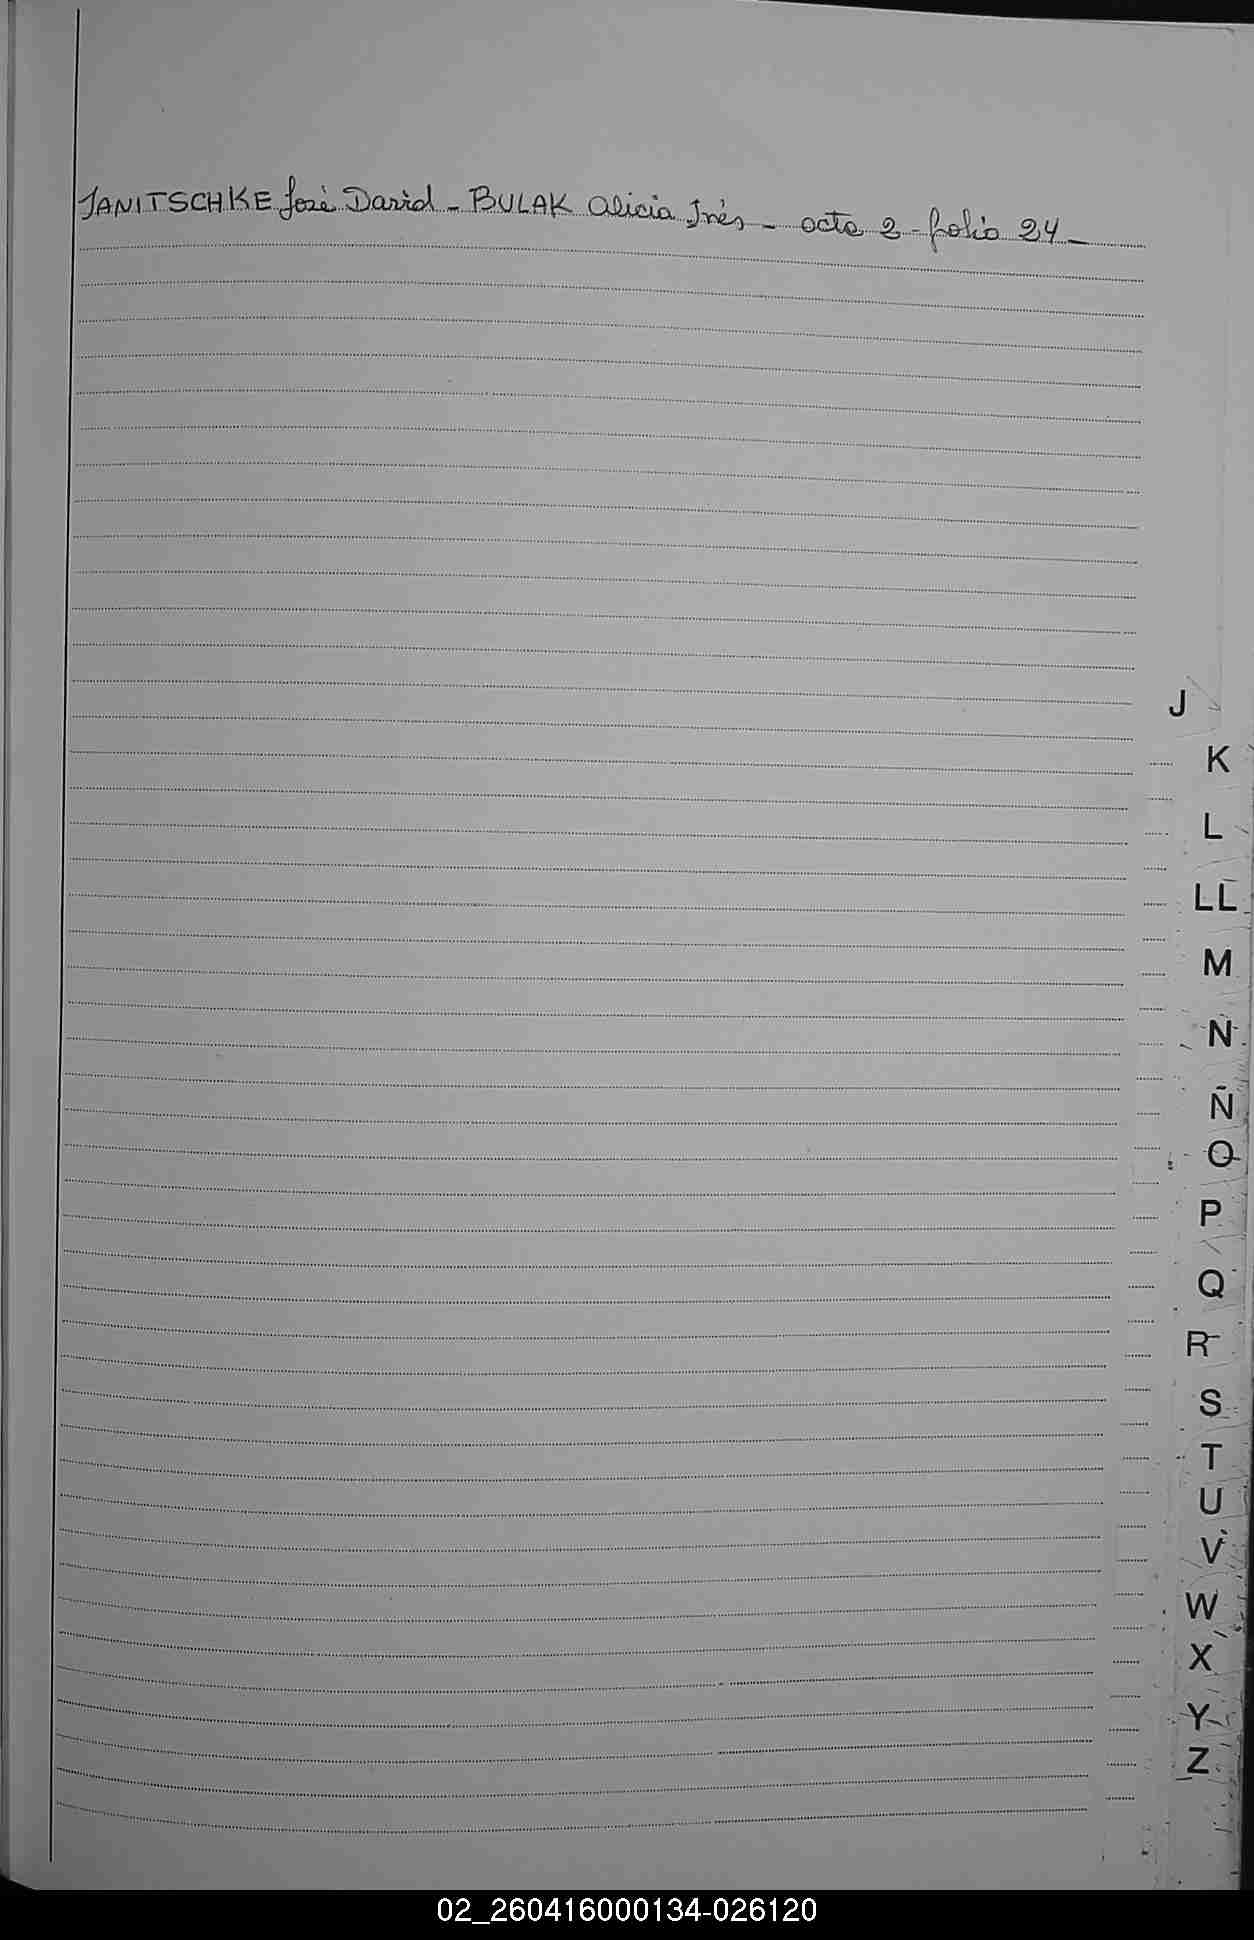 JANITSCHKE José David - BULAK Alicia Inés - acta 2 - folio 24 -
J
K
L
LL
M
N
Ñ
O
P
Q
R
S
T
U
V
W
X
Y
Z
02_260416000134-026120